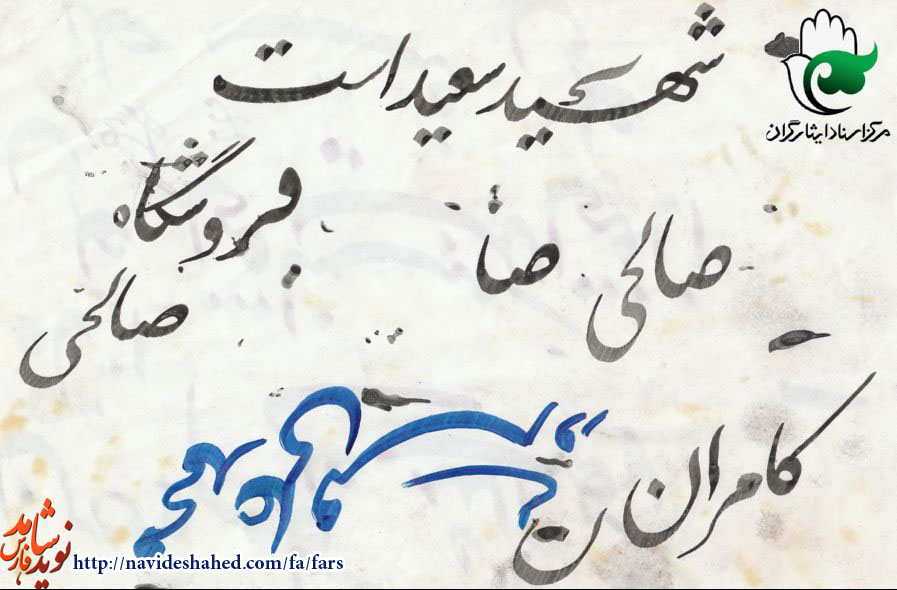 شهید سعید است
مرکز اسناد ایثارگران
فروشگاه
صالحی صا
صالحی
کامران ن
نوید شاهد
فارس
http://navideshahed.com/fa/fars